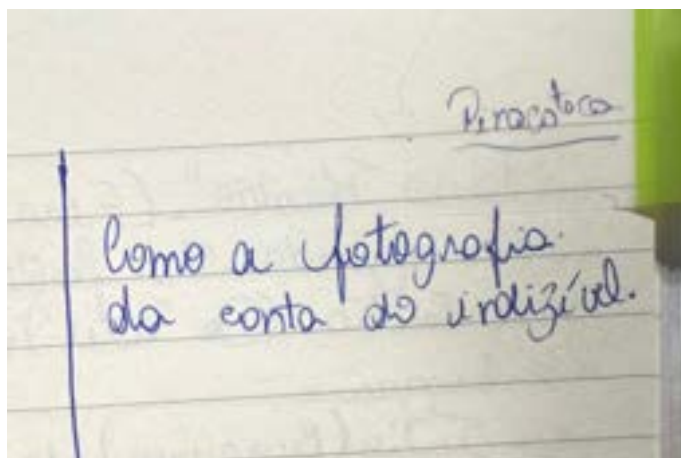 Pinacoteca
Como a fotografia
da conta do indizível.